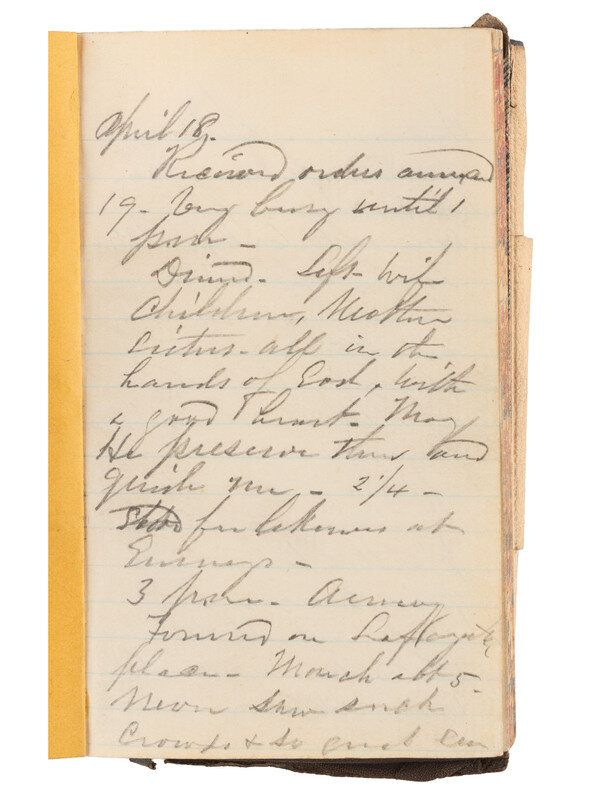 April 18.
Received orders
19. Very busy until 1
p.m. –
Dined. Left wife
children, Mother
sisters – all in the
hands of God, with
a good heart. May
He preserve them and
guide me – 2 1/4 –
for at
3 p.m. –
Formed on Lafayette
place – March abt 5 –
Never saw such
Crowds & so great